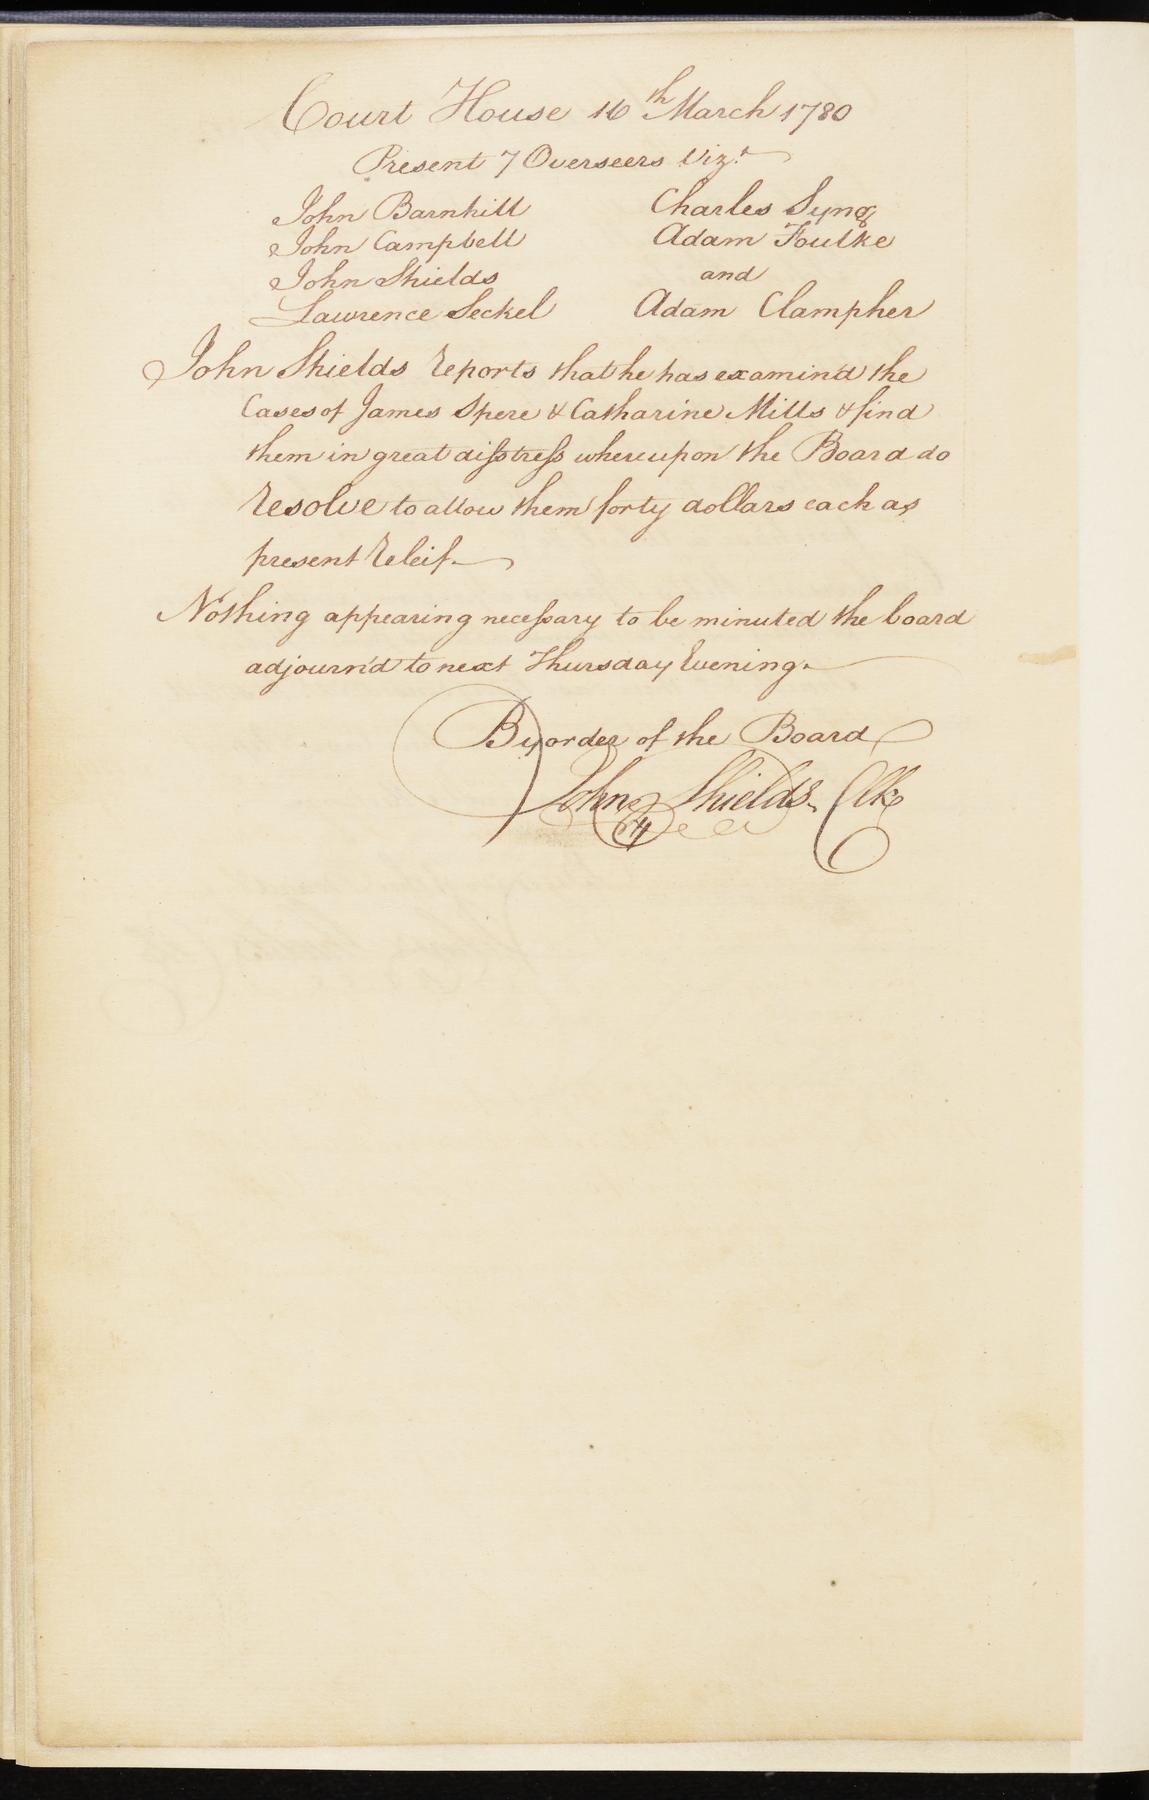 Court House 16th March 1780
Present 7 Overseers Vizt.
John Barnhill Charles Syng
John Campbell Adam Foulke
John Shields and
Lawrence Seckel Adam Clampher
John Shields Reports that he has examin'd the
Cases of James Spere & Catharine Mills & find
them in great disstress whereupon the Board do
Resolve to allow them forty dollars each as
present Releif.
Nothing appearing necessary to be minuted the board
adjourn'd to next Thursday Evening.
By order of the Board
John Shields Clk